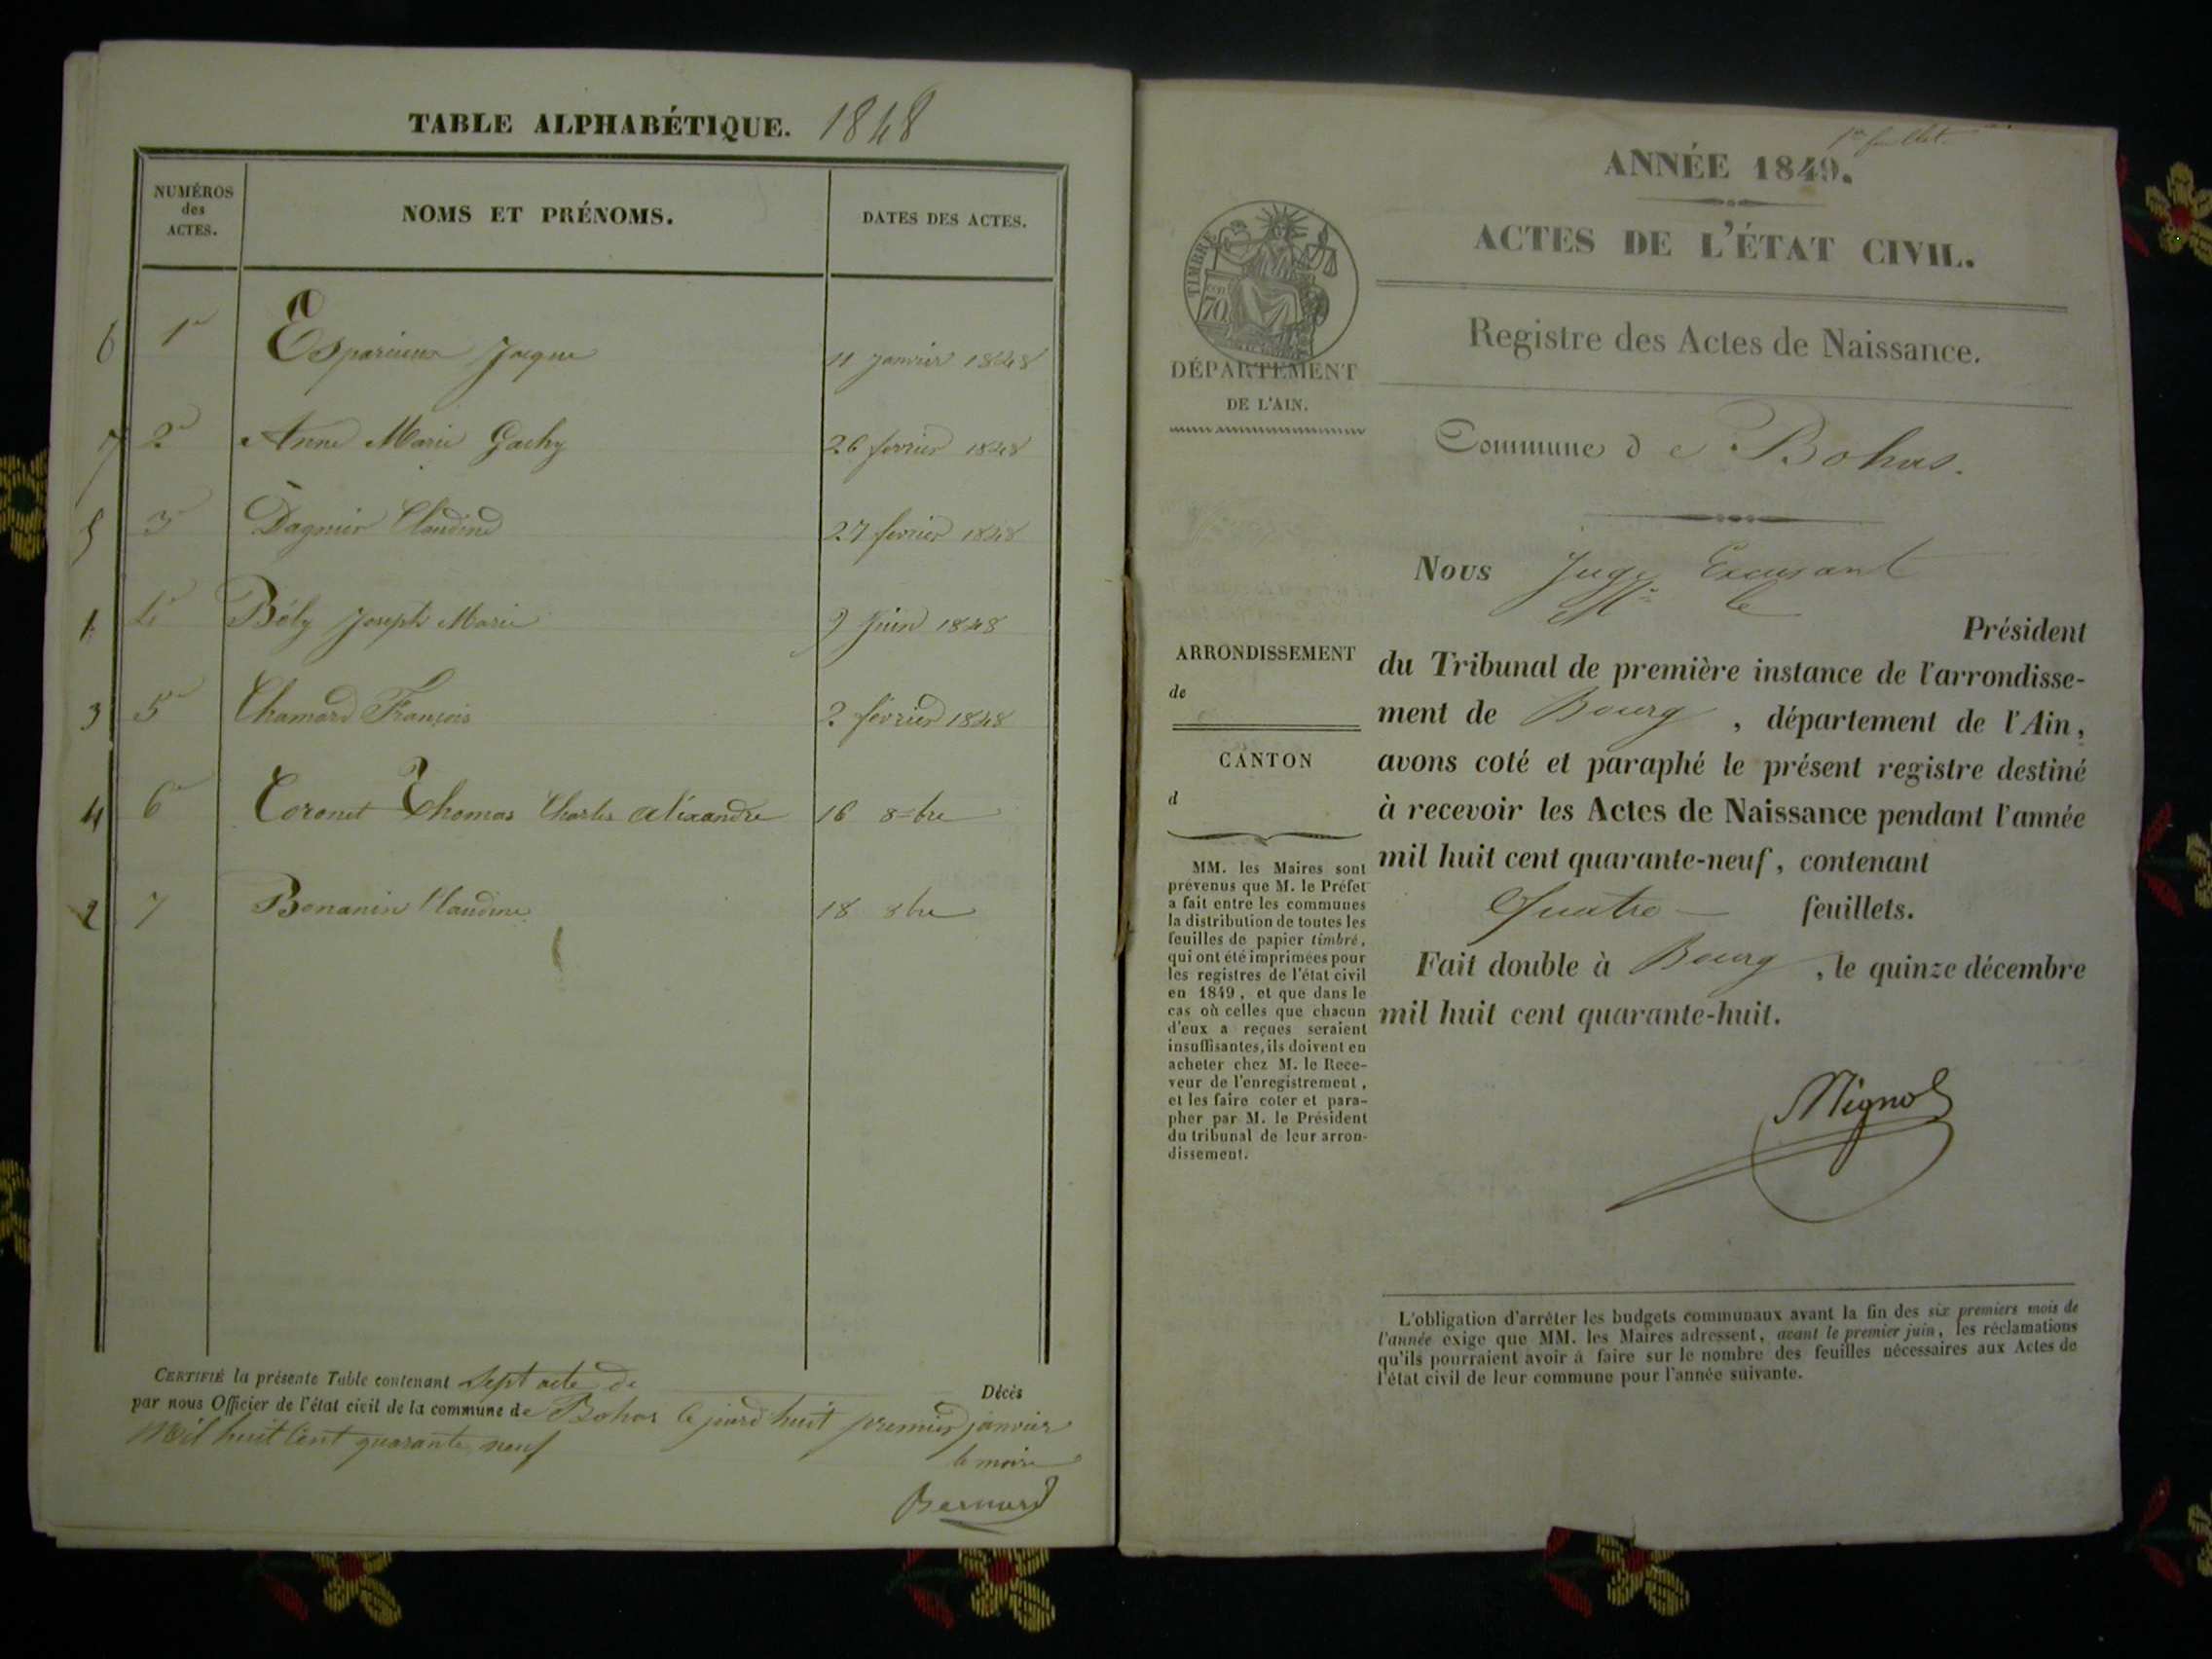 TABLE ALPHABÉTIQUE. 1848
NUMÉROS
des
ACTES.
NOMS ET PRÉNOMS.
DATES DES ACTES.
6 1 Esparieux Jacque 11 janvier 1848
7 2 Anne Marie Gachy 26 fevrier 1848
5 3 Dagnier Claudine 27 fevrier 1848
1 4 Bély Joseph Marie 9 juin 1848
3 5 Chamard François 2 fevrier 1848
4 6 Coronet Thomas Charles alixandre 16 8=bre
2 7 Bonanin Claudine 18 8bre
CERTIFIÉ la présente Table contenant Sept acte de Décès
par nous Officier de l'état civil de la commune de Bohas le jourd huit premier janvier
Mil huit Cent quarante neuf
le maire
Bernard
1er feuillet.
ANNÉE 1849.
ACTES DE L'ÉTAT CIVIL.
TIMBRE
70
DÉPARTEMENT
DE L'AIN.
Registre des Actes de Naissance.
Commune d e Bohas.
Nous Juge
le
Président
du Tribunal de première instance de l'arrondisse-
ment de Bourg, département de l'Ain,
avons coté et paraphé le présent registre destiné
à recevoir les Actes de Naissance pendant l'année
mil huit cent quarante-neuf, contenant
Quatre feuillets.
Fait double à Bourg, le quinze décembre
mil huit cent quarante-huit.
Mignot
ARRONDISSEMENT
de
CANTON
d
MM. les Maires sont
prévenus que M. le Préfet
a fait entre les communes
la distribution de toutes les
feuilles de papier timbré,
qui ont été imprimées pour
les registres de l'état civil
en 1849, et que dans le
cas où celles que chacun
d'eux a reçues seraient
insuffisantes, ils doivent en
acheter chez M. le Rece-
veur de l'enregistrement,
et les faire coter et para-
pher par M. le Président
du tribunal de leur arron-
dissement.
L'obligation d'arrêter les budgets communaux avant la fin des six premiers mois de
l'année exige que MM. les Maires adressent, avant le premier juin, les réclamations
qu'ils pourraient avoir à faire sur le nombre des feuilles nécessaires aux Actes de
l'état civil de leur commune pour l'année suivante.